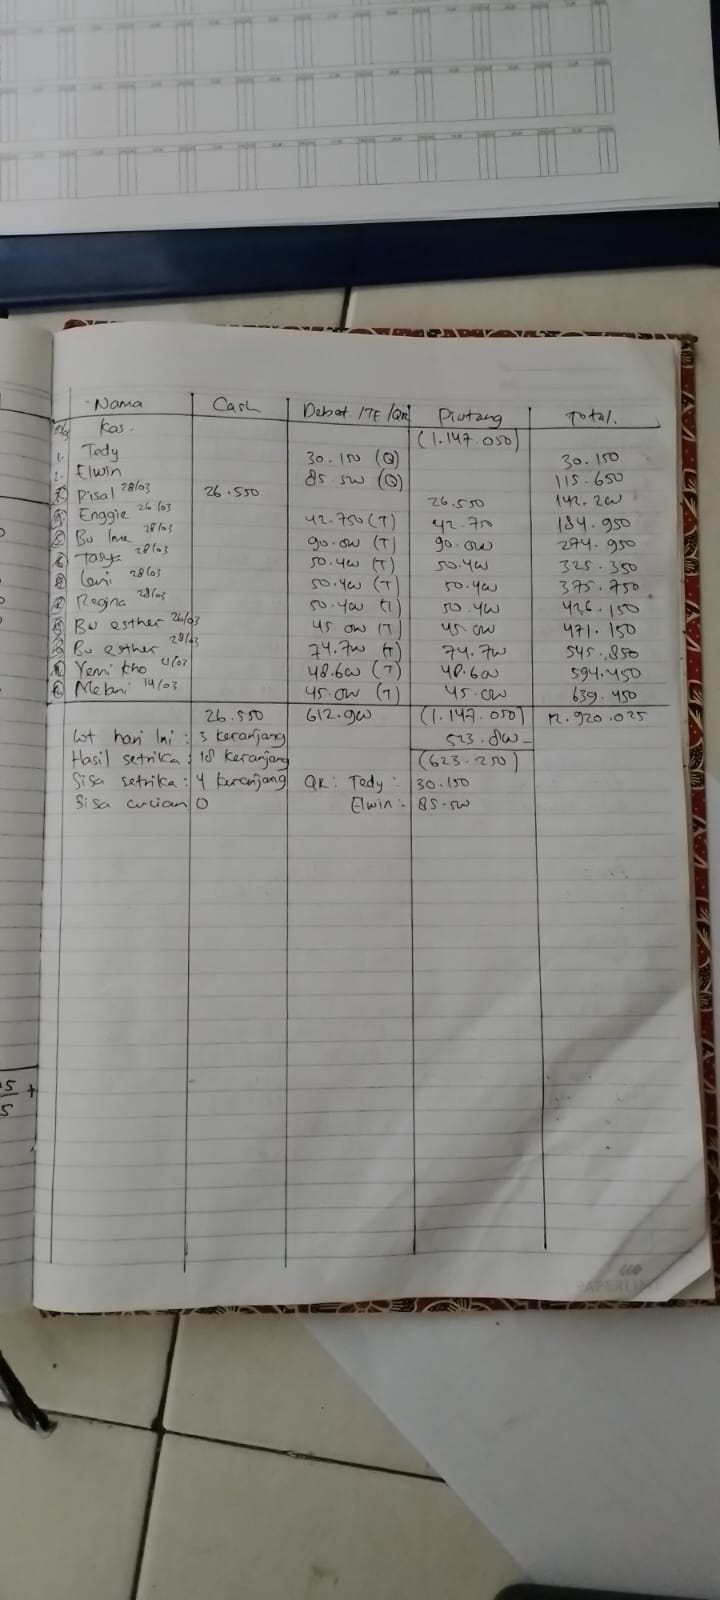 Nama Cash Debet /TF/QR Piutang Total.
Kas. (1.147.050)
1. Tedy 30.150 (Q) 30.150
2. Elwin 85.500 (Q) 115.650
Risal 28/03 26.550 26.550 142.200
Enggie 26/03 42.750 (T) 42.750 184.950
Bu 28/03 90.000 (T) 90.000 274.950
Tasya 28/03 50.400 (T) 50.400 325.350
28/03 50.400 (T) 50.400 375.750
Regina 28/03 50.400 (T) 50.400 426.150
Bu esther 26/03 45.000 (T) 45.000 471.150
Bu esther 28/03 74.700 (T) 74.700 545.850
Yemi kho 48.600 (T) 48.600 594.450
14/03 45.000 (T) 45.000 639.450
26.550 612.900 (1.147.050) 12.920.025
Lot hari Ini : 3 keranjang 523.800 -
Hasil setrika : 18 keranjang (623.250)
Sisa setrika : 4 keranjang QR : Tedy : 30.150
Sisa cucian 0 Elwin : 85.500